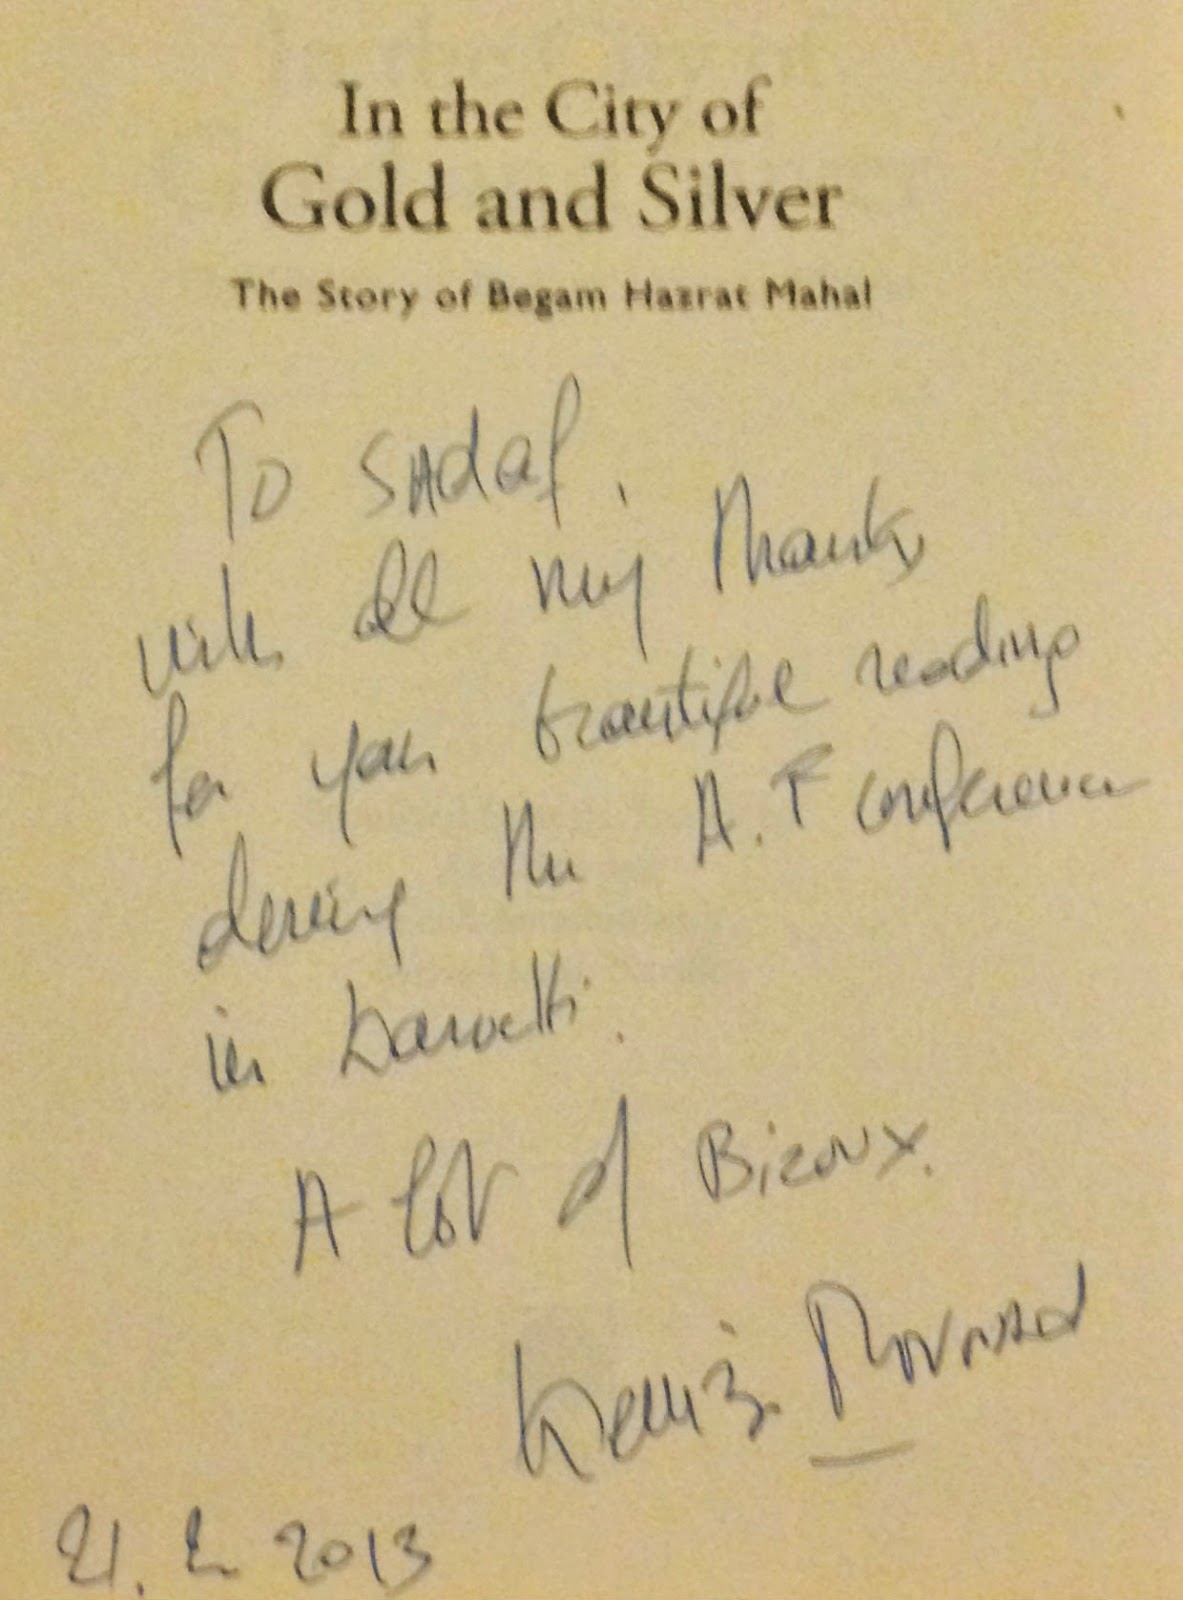 In the City of
Gold and Silver
The Story of Begam Hazrat Mahal
To SAdaf,
with all my thanks
for your beautiful reading
during the A.F conference
in Karachi.
A lot of Bizoux.
Kenizé Mourad
21. 2 2013